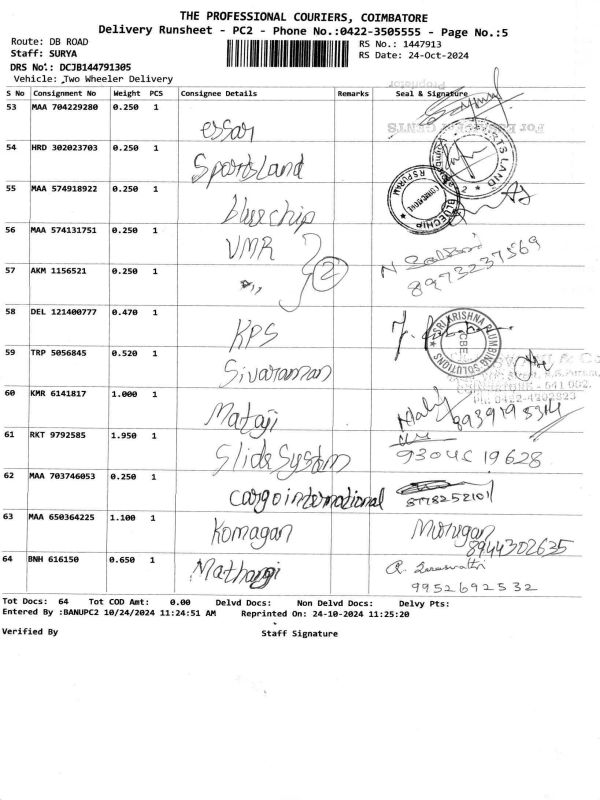 THE PROFESSIONAL COURIERS, COIMBATORE
Delivery Runsheet - PC2 - Phone No.:0422-3505555 - Page No.:5
Route: DB ROAD
RS No.: 1447913
Staff: SURYA
RS Date: 24-Oct-2024
DRS No.: DCJB144791305
Vehicle: Two Wheeler Delivery
S No Consignment No Weight PCS Consignee Details Remarks Seal & Signature
53 MAA 704229280 0.250 1 essar
54 HRD 302023703 0.250 1 Sportsland
55 MAA 574918922 0.250 1 bluechip
BLUECHIP
56 MAA 574131751 0.250 1 VMR
2
8973237569
57 AKM 1156521 0.250 1 "
58 DEL 121400777 0.470 1 KPS
SRI KRISHNA PLUMBING SOLUTIONS
CBE
59 TRP 5056845 0.520 1 Sivaraman
60 KMR 6141817 1.000 1 Mataji
61 RKT 9792585 1.950 1 Slide System
62 MAA 703746053 0.250 1 cargo international
63 MAA 650364225 1.100 1 Komagan Murugan
8944302635
64 BNH 616150 0.650 1 Mathangi
9952692532
Tot Docs: 64 Tot COD Amt: 0.00 Delvd Docs: Non Delvd Docs: Delvy Pts:
Entered By :BANUPC2 10/24/2024 11:24:51 AM Reprinted On: 24-10-2024 11:25:20
Verified By Staff Signature